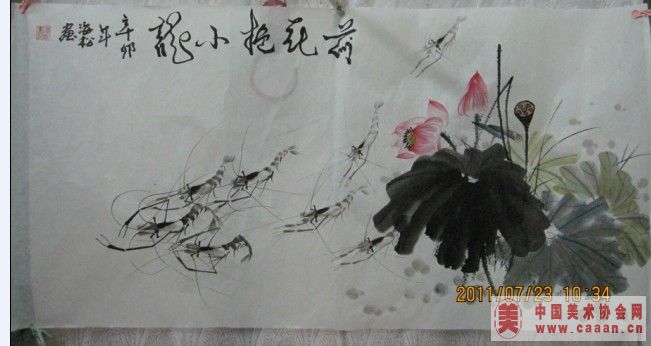 荷花小龍
辛卯
年
畫
2011/07/23 10:34
美 中国美术协会网
www.caaan.cn